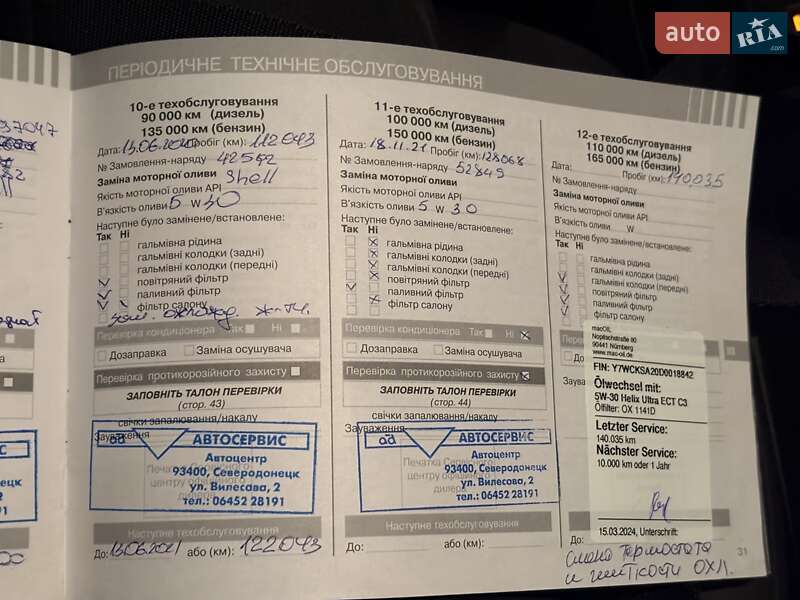 auto RIA.com
ПЕРІОДИЧНЕ ТЕХНІЧНЕ ОБСЛУГОВУВАННЯ
97047
10-е техобслуговування
90 000 км (дизель)
135 000 км (бензин)
Дата: 13.06.2020 Пробіг (км): 112043
№ Замовлення-наряду 42592
Заміна моторної оливи Shell
Якість моторної оливи API
В'язкість оливи 5 W 30
Наступне було замінене/встановлене:
Так Ні
гальмівна рідина
гальмівні колодки (задні)
гальмівні колодки (передні)
повітряний фільтр
паливний фільтр
фільтр салону
зам. охлажд. ж-ти.
Перевірка кондиціонера Так Ні
Дозаправка Заміна осушувача
Перевірка протикорозійного захисту
ЗАПОВНІТЬ ТАЛОН ПЕРЕВІРКИ
(стор. 43)
свічки запалювання/накалу
Зауваження
ad АВТОСЕРВИС
Автоцентр
93400, Северодонецк
ул. Вилесова, 2
тел.: 06452 28191
Наступне техобслуговування
До: 13.06.2021 або (км): 122043
11-е техобслуговування
100 000 км (дизель)
150 000 км (бензин)
Дата: 18.11.21 Пробіг (км): 128068
№ Замовлення-наряду 52849
Заміна моторної оливи
Якість моторної оливи API
В'язкість оливи 5 W 30
Наступне було замінене/встановлене:
Так Ні
гальмівна рідина
гальмівні колодки (задні)
гальмівні колодки (передні)
повітряний фільтр
паливний фільтр
фільтр салону
Перевірка кондиціонера Так Ні
Дозаправка Заміна осушувача
Перевірка протикорозійного захисту
ЗАПОВНІТЬ ТАЛОН ПЕРЕВІРКИ
(стор. 44)
свічки запалювання/накалу
Зауваження
ad АВТОСЕРВИС
Печатка Сервісного
центру офіційного
дилера
Автоцентр
93400, Северодонецк
ул. Вилесова, 2
тел.: 06452 28191
Наступне техобслуговування
До: або (км):
12-е техобслуговування
110 000 км (дизель)
165 000 км (бензин)
Дата: Пробіг (км): 140.035
№ Замовлення-наряду
Заміна моторної оливи
Якість моторної оливи API
В'язкість оливи W
Наступне було замінене/встановлене:
Так Ні
гальмівна рідина
гальмівні колодки (задні)
гальмівні колодки (передні)
повітряний фільтр
паливний фільтр
фільтр салону
macOIL
Nopitschstraße 90
90441 Nürnberg
www.mac-oil.de
FIN: Y7WCKSA20D0018842
Ölwechsel mit:
5W-30 Helix Ultra ECT C3
Ölfilter: OX 1141D
Letzter Service:
140.035 km
Nächster Service:
10.000 km oder 1 Jahr
15.03.2024, Unterschrift:
31
смена термостата
и жидкости ОХЛ.